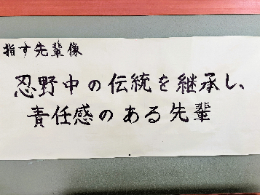 指す先輩像
忍野中の伝統を継承し、
責任感のある先輩